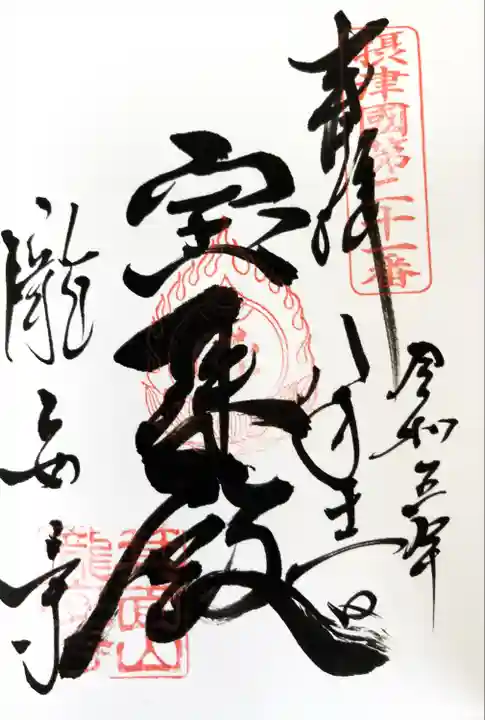 摂津國第二十一番
奉拝
令和五年
宝珠殿
瀧安寺
箕面山
瀧安寺